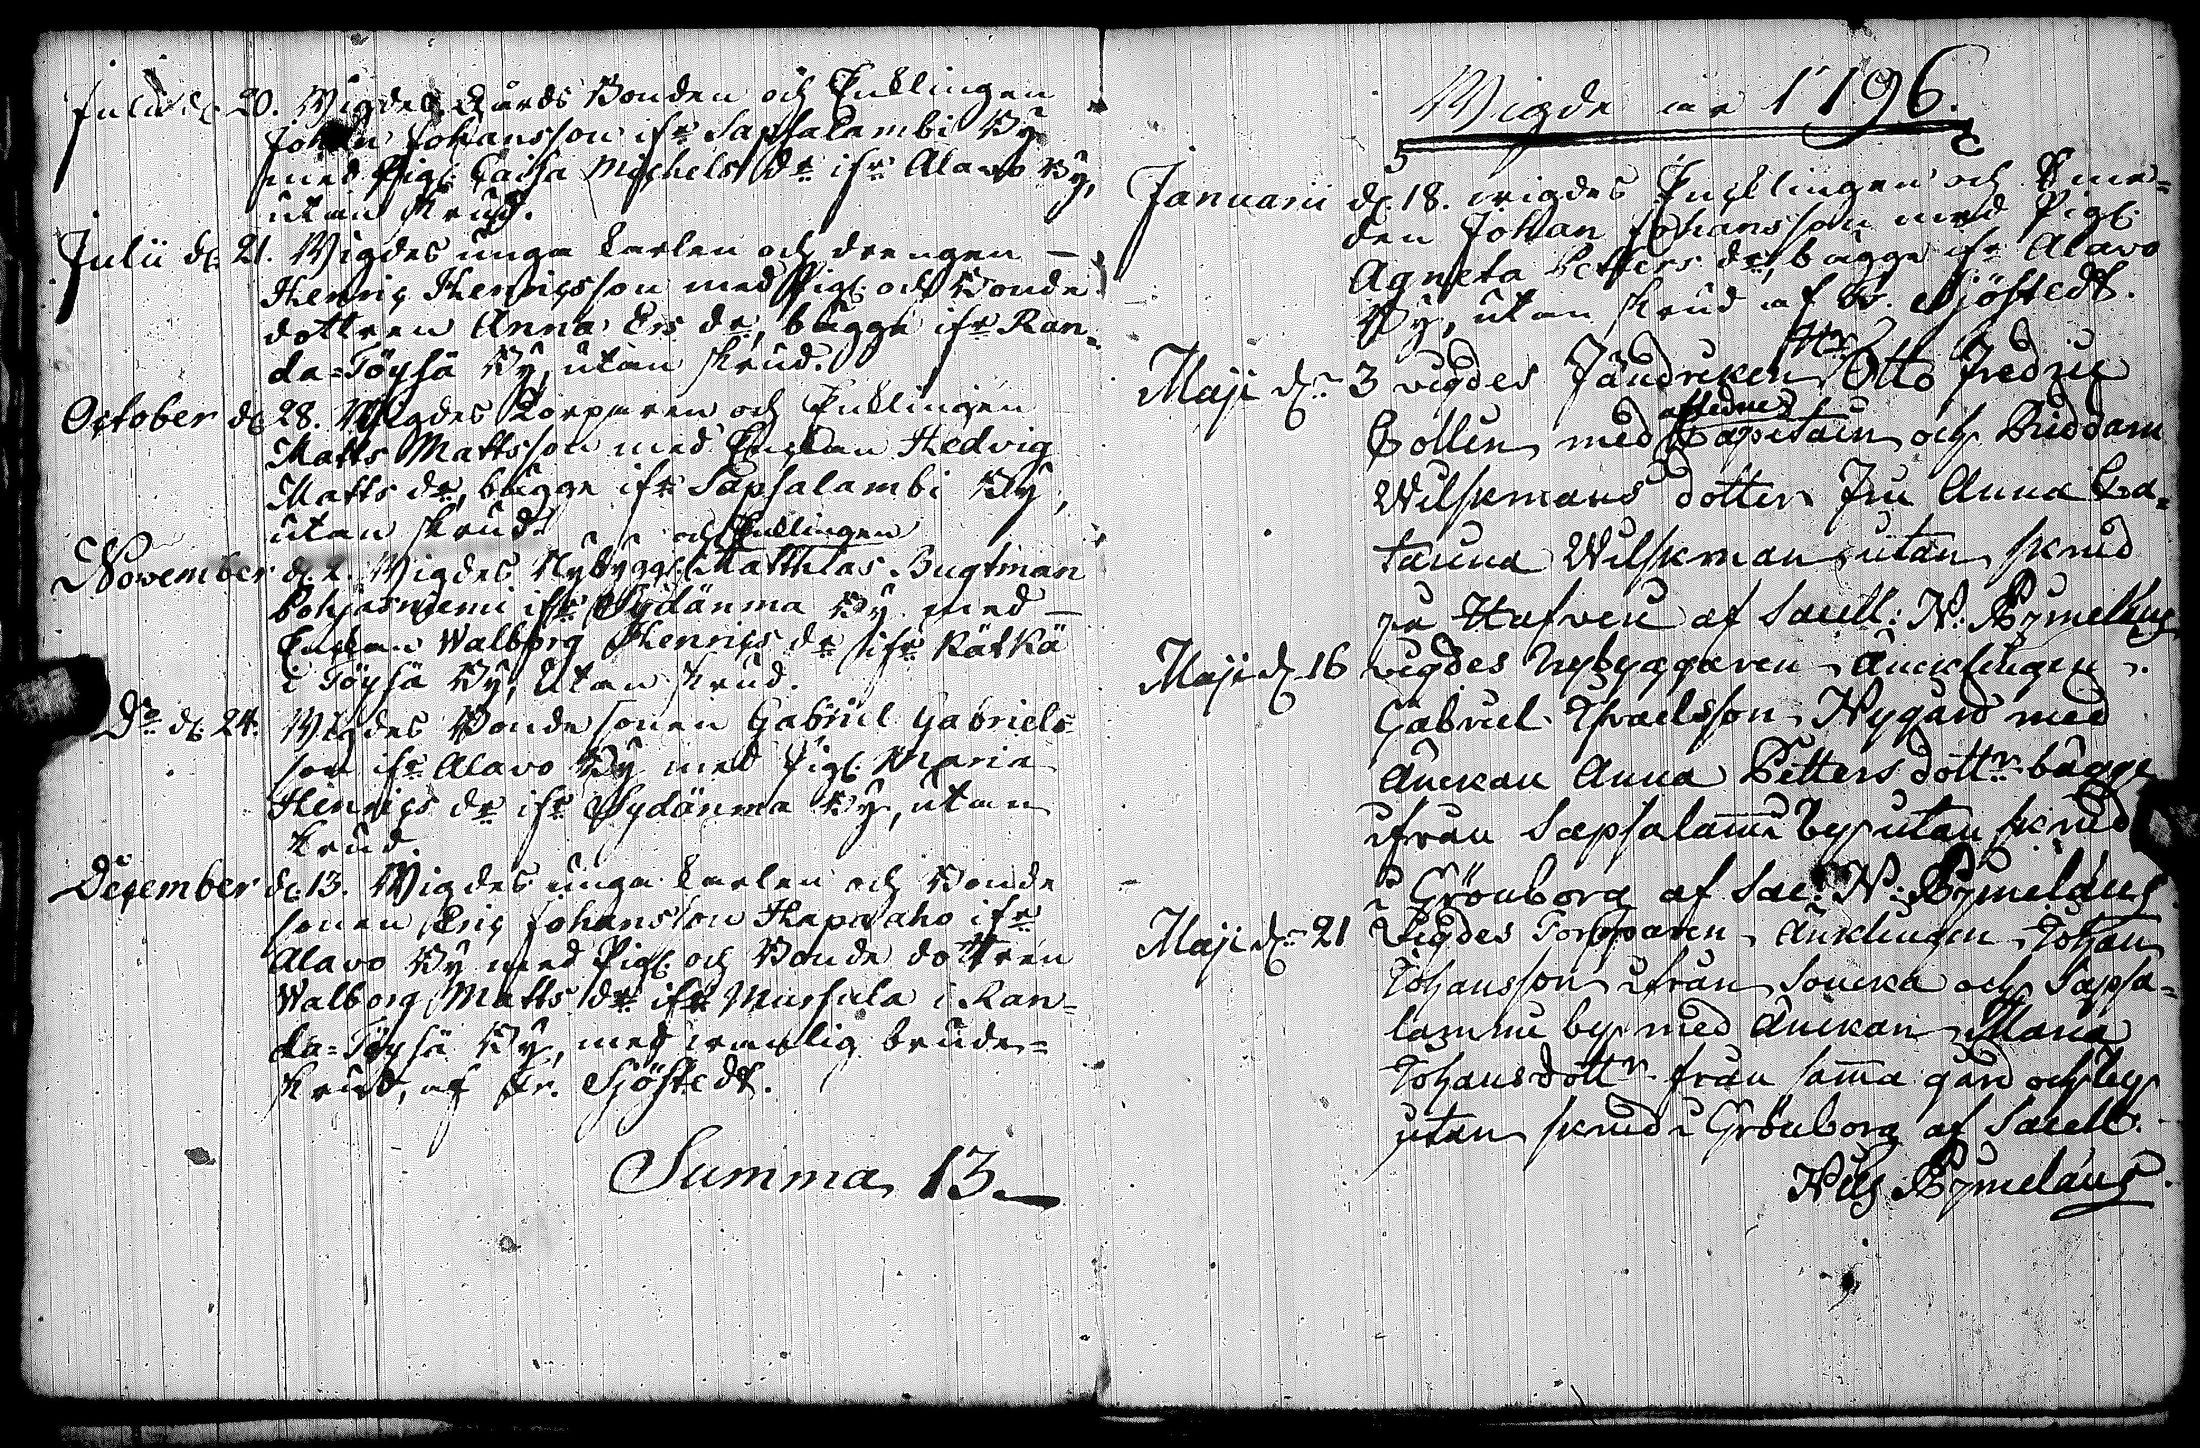 Julii d. 20. Wigdes Bonden och Encklingen
Johan Johansson ifr Sapsalambi By
med Pig. Caisa Michels dr ifr Alavo By,
utan skrud.
Julii d. 21. Wigdes unga karlen och drengen
Henric Henricsson med Pig. och Bonde
dottren Anna Ers dr, bägge ifr Ran-
da=Töysä By utan skrud.
October d. 28. Wigdes Torparen och Encklingen
Matts Mattsson med Enckan Hedvig
Matts dr, bägge ifr Sapsalambi By,
utan skrud.
och Encklingen
November d. 2. Wigdes Nybygg. Matthias Bugtman
Pohjasniemi ifr Sydänma By med
Enckan Walborg Henrics dr ifr Rätkä
i Töysä By, utan skrud.
Do d. 24. Wigdes Bonde sonen Gabriel Gabriels-
son ifr Alavo By med Pig. Maria
Henrics dr ifr Sydänma By, utan
skrud.
December d. 13. Wigdes unga karlen och Bonde
sonen Eric Johansson Hapaaho ifr
Alavo By med Pig. och Bonde dottren
Walborg Matts dr ifr Mursula i Ran-
da=Töysä By, med vanlig brude=
skrud, af Sjöstedt.
Summa 13.
Wigde år 1796.
Januarii d. 18. wigdes Encklingen och Bon=
den Johan Johansson med Pig.
Agneta Petters dr, bägge ifr Alavo
By, utan skrud af Sjöstedt.
Hr
Maji d. 3 vigdes Fändricken Otto Fredric
afledne
Gollen med Capitain och Riddarn
Wilskmans dotter Fru Anna Ca=
tarina Wilskman utan skrud
på Hafveri af Sacell: N. Rymelaus
Maji d. 16 vigdes Nybyggaren Ancklingen
Gabriel Israelsson Nygård med
Anckan Anna Petters dottr bägge
ifrån Sapsalammi by utan skrud
i Grönborg af Sac: N: Rymelaus
Maji d. 21 Vigdes Torpparen Ancklingen Johan
Johansson ifrån Soucka och Sapsa=
lammi by med Anckan Maria
Johansdottr från samma gård och by
utan skrud i Grönborg af Sacell.
Nils Rymelaus